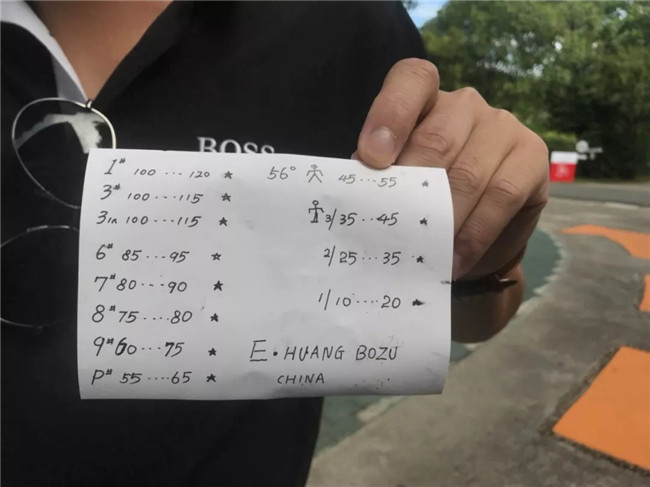 BOSS
1# 100 ... 120 ★
3# 100 ... 115 ★
3in 100 .... 115 ★
6# 85 ... 95 ☆
7# 80 ... 90 ★
8# 75 .... 80 ★
9# 60 ... 75 ★
P# 55 .... 65 ★
56° 45 ... 55 ★
3/35 .. 45 ★
2/25 ... 35 ★
1/10 .... 20 ★
E · HUANG BOZU
CHINA